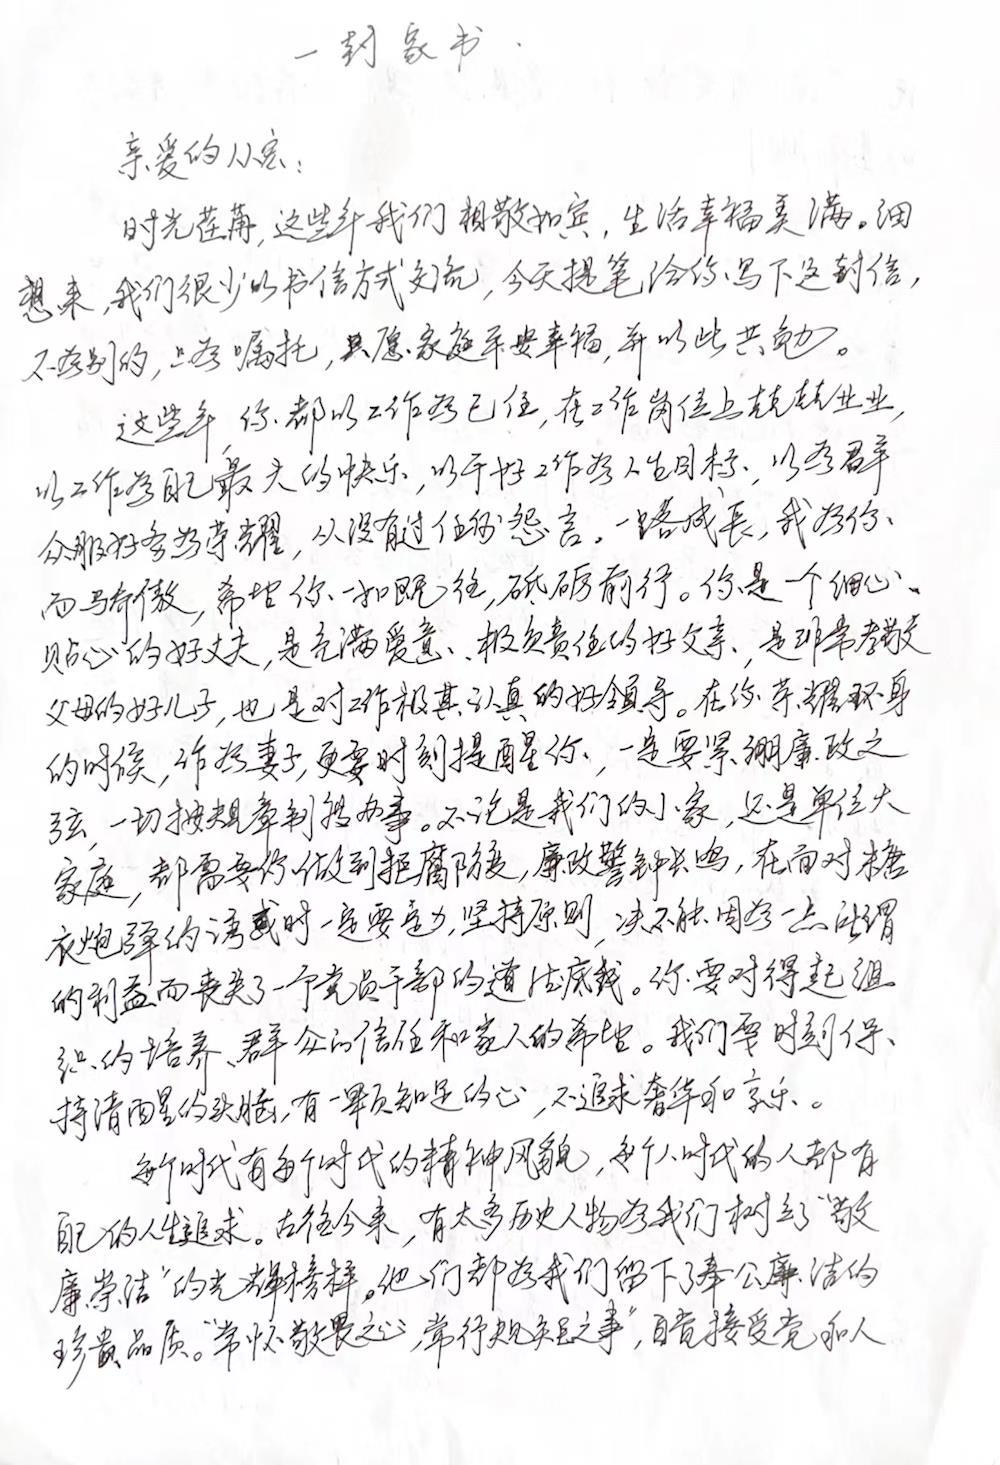 一封家书
亲爱的小宏：
时光荏苒，这些年我们相敬如宾，生活幸福美满。细
想来，我们很少以书信方式交流，今天提笔给你写下这封信，
不为别的，只为嘱托，且愿家庭平安幸福，并以此共勉。
这些年，你都以工作为己任，在工作岗位上兢兢业业，
以工作为自己最大的快乐，以干好工作为人生目标，以为群
众服好务为荣耀，从没有过任何怨言。一路成长，我为你
而骄傲，希望你一如既往，砥砺前行。你是一个细心、
贴心的好丈夫，是充满爱意、极负责任的好父亲，是非常孝敬
父母的好儿子，也是对工作极其认真的好领导。在你荣耀环身
的时候，作为妻子，更要时刻提醒你，一定要紧绷廉政之
弦，一切按规章制度办事。不论是我们的小家，还是单位大
家庭，都需要你做到拒腐防变，廉政警钟长鸣，在面对糖
衣炮弹的诱惑时一定要定力，坚持原则，决不能因为一点所谓
的利益而丧失了一个党员干部的道德底线。你要对得起组
织的培养、群众的信任和家人的希望。我们要时刻保
持清醒的头脑，有一颗知足的心，不追求奢华和享乐。
每个时代有每个时代的精神风貌，每个时代的人都有
自己的人生追求。古往今来，有太多历史人物为我们树立了“敬
廉崇洁”的光辉榜样。他们都为我们留下了奉公廉洁的
珍贵品质。“常怀敬畏之心，常行规矩之事”，自觉接受党和人